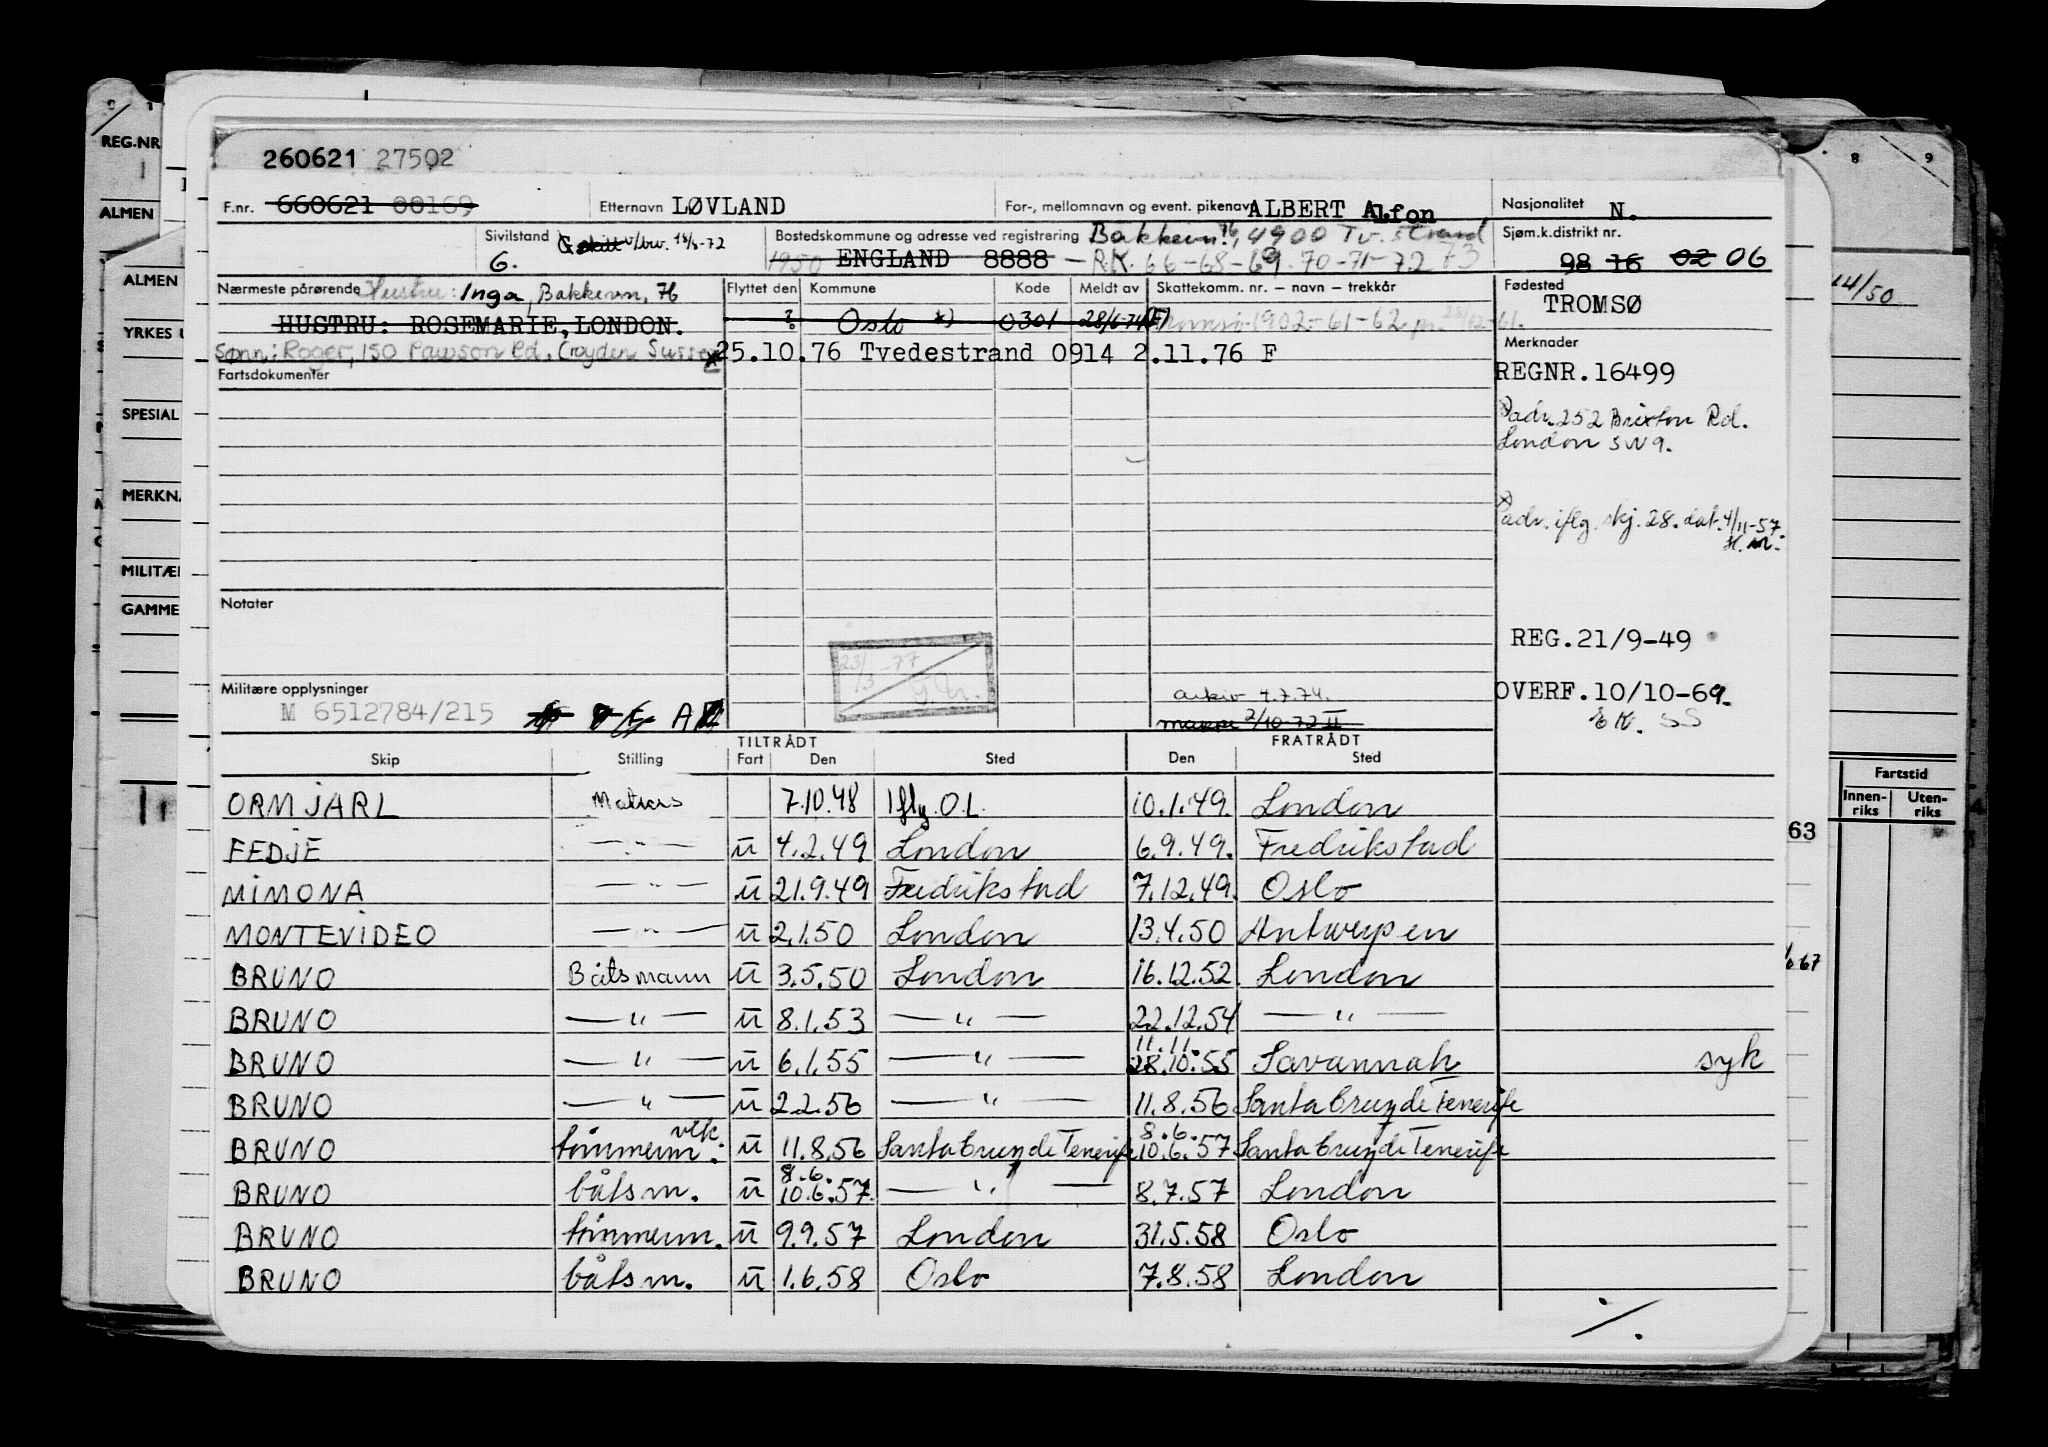 260621 27502
F.nr. 660621 00169 Etternavn LØVLAND For-, mellomnavn og event. pikenavn ALBERT Alfon Nasjonalitet N.
Sivilstand G. skilt v/bev. 18/8-72 Bostedskommune og adresse ved registrering Bakkevn. 76, 4900 Tv.strand Sjøm.k.distrikt nr.
G. 1950 ENGLAND 8888 - R.K. 66-68-69-70-71-72 73 98 16 02 06
Nærmeste pårørende Hustru: Inga, Bakkevn, 76 Flyttet den Kommune Kode Meldt av Skattekomm. nr. — navn — trekkår Fødested
HUSTRU: ROSEMARIE, LONDON. ? Oslo *) 0301 28/6-74 (F) Tromsø 1902-61-62 TROMSØ
Sønn: Roger, 150 Pawson Rd. Croyden Sussex 25.10.76 Tvedestrand 0914 2.11.76 F Merknader
Fartsdokumenter REGNR.16499
adr. 252 Brixton Rd.
London SW9.
adr. iflg. skj. 28. dat. 4/11-57
H.M.
Notater
REG.21/9-49
23/3-77
Militære opplysninger arkiv 7.7.74. OVERF.10/10-69.
M 6512784/215 2/10-72 II EK. SS
TILTRÅDT FRATRÅDT
Skip Stilling Fart Den Sted Den Sted
ORM JARL Matros 7.10.48 Iflg. O.L. 10.1.49. London
FEDJE —"— u 4.2.49 London 6.9.49. Fredrikstad
MIMONA —"— u 21.9.49 Fredrikstad 7.12.49. Oslo
MONTEVIDEO —"— u 2.1.50 London 13.4.50 Antwerpen
BRUNO Båtsmann u 3.5.50 London 16.12.52 London
BRUNO —"— u 8.1.53 —"— 22.12.54 —"—
11.11.
BRUNO —"— u 6.1.55 —"— 28.10.55 Savannah syk
BRUNO —"— u 2.2.56 —"— 11.8.56 Santa Cruz de Tenerife
vik. 8.6.
BRUNO tømmerm. u 11.8.56 Santa Cruz de Tenerife 10.6.57 Santa Cruz de Tenerife
8.6.
BRUNO båtsm. u 10.6.57. —"— 8.7.57 London
BRUNO tømmerm. u 9.9.57 London 31.5.58 Oslo
BRUNO båtsm. u 1.6.58 Oslo 7.8.58 London
./.
REG.NR
ALMEN
ALMEN
YRKES
SPESIAL
MERKNA
MILITÆR
GAMME
8 9
14/50
Fartstid
Innen-
riks
Uten-
riks
63
67